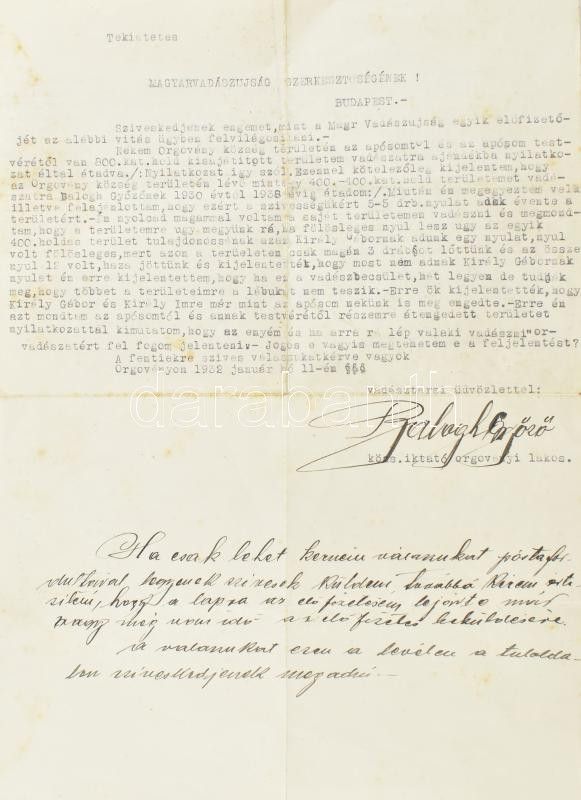 Tekintetes
MAGYARVADÁSZUJSÁG SZERKESZTŐSÉGÉNEK !
BUDAPEST.-
Sziveskedjenek engemet,mint a Magr Vadászujság egyik előfizető-
jét az alábbi vitás ügyben felvilágositani.-
Nekem Orgovány község területén az apósomtol és az apósom test-
vérétől van 800.kat.hold kisajátitott területem vadászatra ajándékba nyilatko-
zat által átadva./:Nyilatkozat igy szól.Ezennel kötelezőleg kijelentem,hogy
az Orgovány község területén lévő mintegy 400.-400.kat.hold területemet vadá-
szatra Balogh Győzőnek 1930 évtől 1938 évig átadom:/.Miután én megegyeztem velük
illetve felajánlottam,hogy ezért a szivességükért 5-5 drb.nyulat adok évente a
területért.-Én nyolcad magammal voltam a saját területemen vadászni és megmond-
tam,hogy a területemre ugy megyünk rá,ha fölösleges nyul lesz ugy az egyik
400.holdas terület tulajdonossának azaz Király Gábornak adunk egy nyulat,nyul
volt fölösleges,mert azon a területen csak magán 3 drabot lőttünk és az össze
nyul 12 volt,haza jöttünk és kijelentették,hogy most nem adnak Király Gábornak
nyulat én erre kijelentettem,hogy ha ez a vadászbecsület,hát legyen de tudják
meg,hogy többet a területeimre a lábukat nem teszik.-Erre ők kijelentették,hogy
Király Gábor és Király Imre már mint az apósom nekünk is meg engedte.-Erre én
azt mondtam az apósomtól és annak testvérétől részemre átengedett területet
nyilatkozattal kimutatom,hogy az enyém és ha arra rá lép valaki vadászni"or-
vadászatért fel fogom jelenteni.- Jogos e vagyis megtehetem e a feljelentést?
A fentiekre szives válaszukatkérve vagyok
Orgoványon 1932 január hó 11-én
vadásztárzi üdvözlettel:
Balogh Győző
közs.iktató orgoványi lakos.
Ha csak lehet kérném válaszukat posta for-
dultával legyenek szivesek küldeni, továbbá kérem érte-
siteni, hogy a lapra az előfizetésem lejárt e már
vagy még nem idő az előfizetés beküldésére.
A válaszukat ezen a levélen a tulolda-
lon sziveskedjenek megadni.-
darabanth